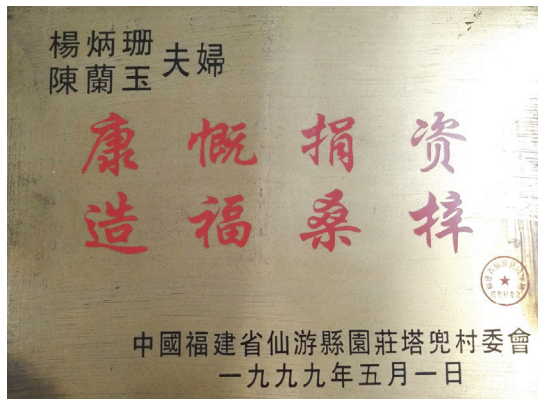 楊炳珊
陳蘭玉
夫婦
康慨捐资
造福桑梓
中國福建省仙游縣園莊塔兜村委會
一九九九年五月一日